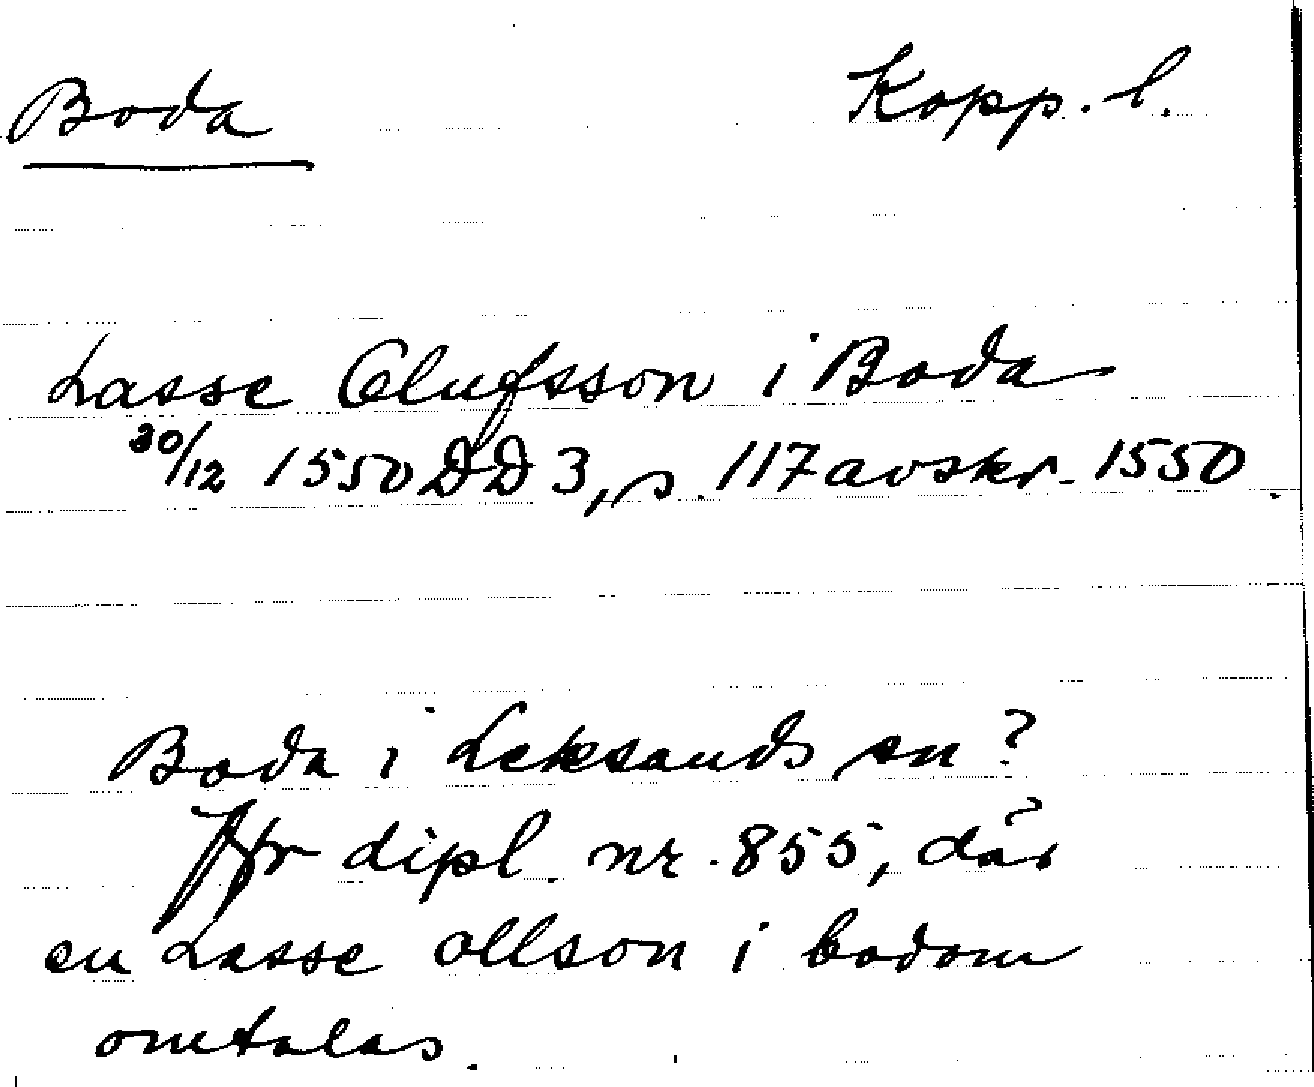 Boda Kopp. l.
Lasse Olufsson i Boda
30/12 1550 DD 3, s. 117 avskr. 1550.
Boda i Leksands sn?
Jfr dipl. nr. 855, där
en Lasse ollson i bodom
omtalas.